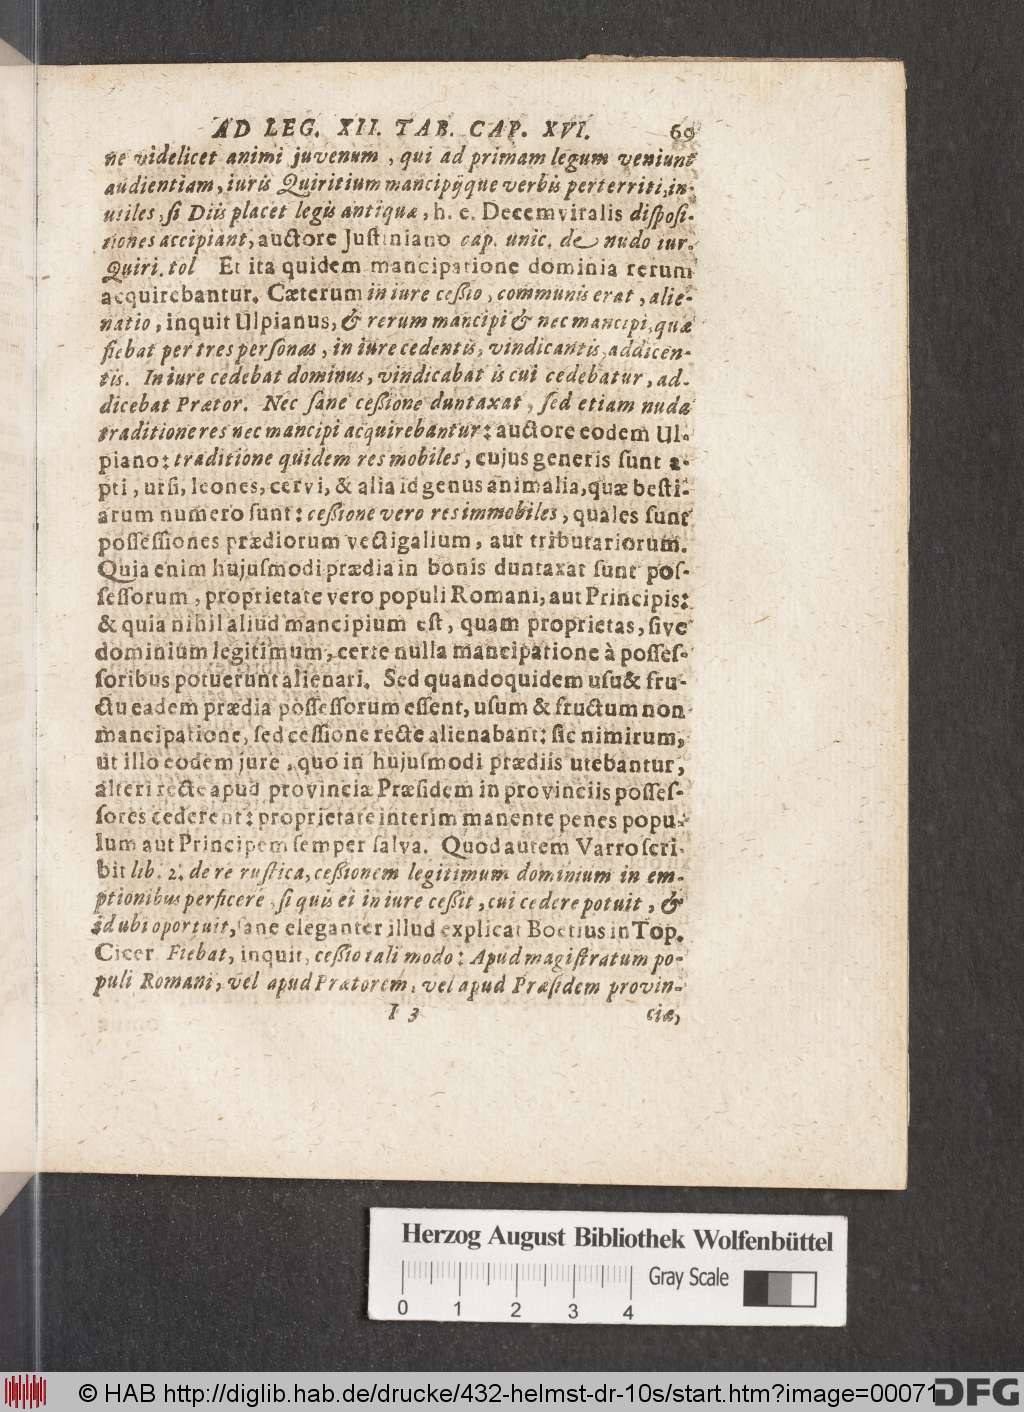 AD LEG. XII. TAB. CAP. XVI. 69
ne videlicet animi juvenum, qui ad primam legum veniunt
audientiam, iuris Quiritium mancipijque verbis perterriti, in-
utiles, si Diis placet legis antiquæ, h. e. Decemviralis disposi-
tiones accipiant, auctore Justiniano cap. unic. de nudo iur.
Quiri. tol Et ita quidem mancipatione dominia rerum
acquirebantur. Cæterum in iure cessio, communis erat, alie-
natio, inquit Ulpianus, & rerum mancipi & nec mancipi, quæ
fiebat per tres personas, in iure cedentis, vindicantis, addicen-
tis. In iure cedebat dominus, vindicabat is cui cedebatur, ad-
dicebat Prætor. Nec sane cessione duntaxat, sed etiam nuda
traditione res nec mancipi acquirebantur: auctore eodem Ul-
piano: traditione quidem res mobiles, cujus generis sunt a-
pri, ursi, leones, cervi, & alia id genus animalia, quæ besti-
arum numero sunt: cessione vero res immobiles, quales sunt
possessiones prædiorum vectigalium, aut tributariorum.
Quia enim hujusmodi prædia in bonis duntaxat sunt pos-
sessorum, proprietate vero populi Romani, aut Principis:
& quia nihil aliud mancipium est, quam proprietas, sive
dominium legitimum, certe nulla mancipatione à posses-
soribus potuerunt alienari. Sed quandoquidem usu & fru-
ctu eadem prædia possessorum essent, usum & fructum non
mancipatione, sed cessione recte alienabant: sic nimirum,
ut illo eodem jure, quo in hujusmodi prædiis utebantur,
alteri recte apud provinciæ Præsidem in provinciis posses-
sores cederent: proprietate interim manente penes popu-
lum aut Principem semper salva. Quod autem Varro scri-
bit lib. 2. de re rustica, cessionem legitimum dominium in em-
ptionibus perficere, si quis ei in iure cessit, cui cedere potuit, &
id ubi oportuit, sane eleganter illud explicat Boetius in Top.
Cicer Fiebat, inquit, cessio tali modo: Apud magistratum po-
puli Romani, vel apud Prætorem, vel apud Præsidem provin-
I 3 ciæ,
Herzog August Bibliothek Wolfenbüttel
Gray Scale
0 1 2 3 4
© HAB http://diglib.hab.de/drucke/432-helmst-dr-10s/start.htm?image=00071
DFG